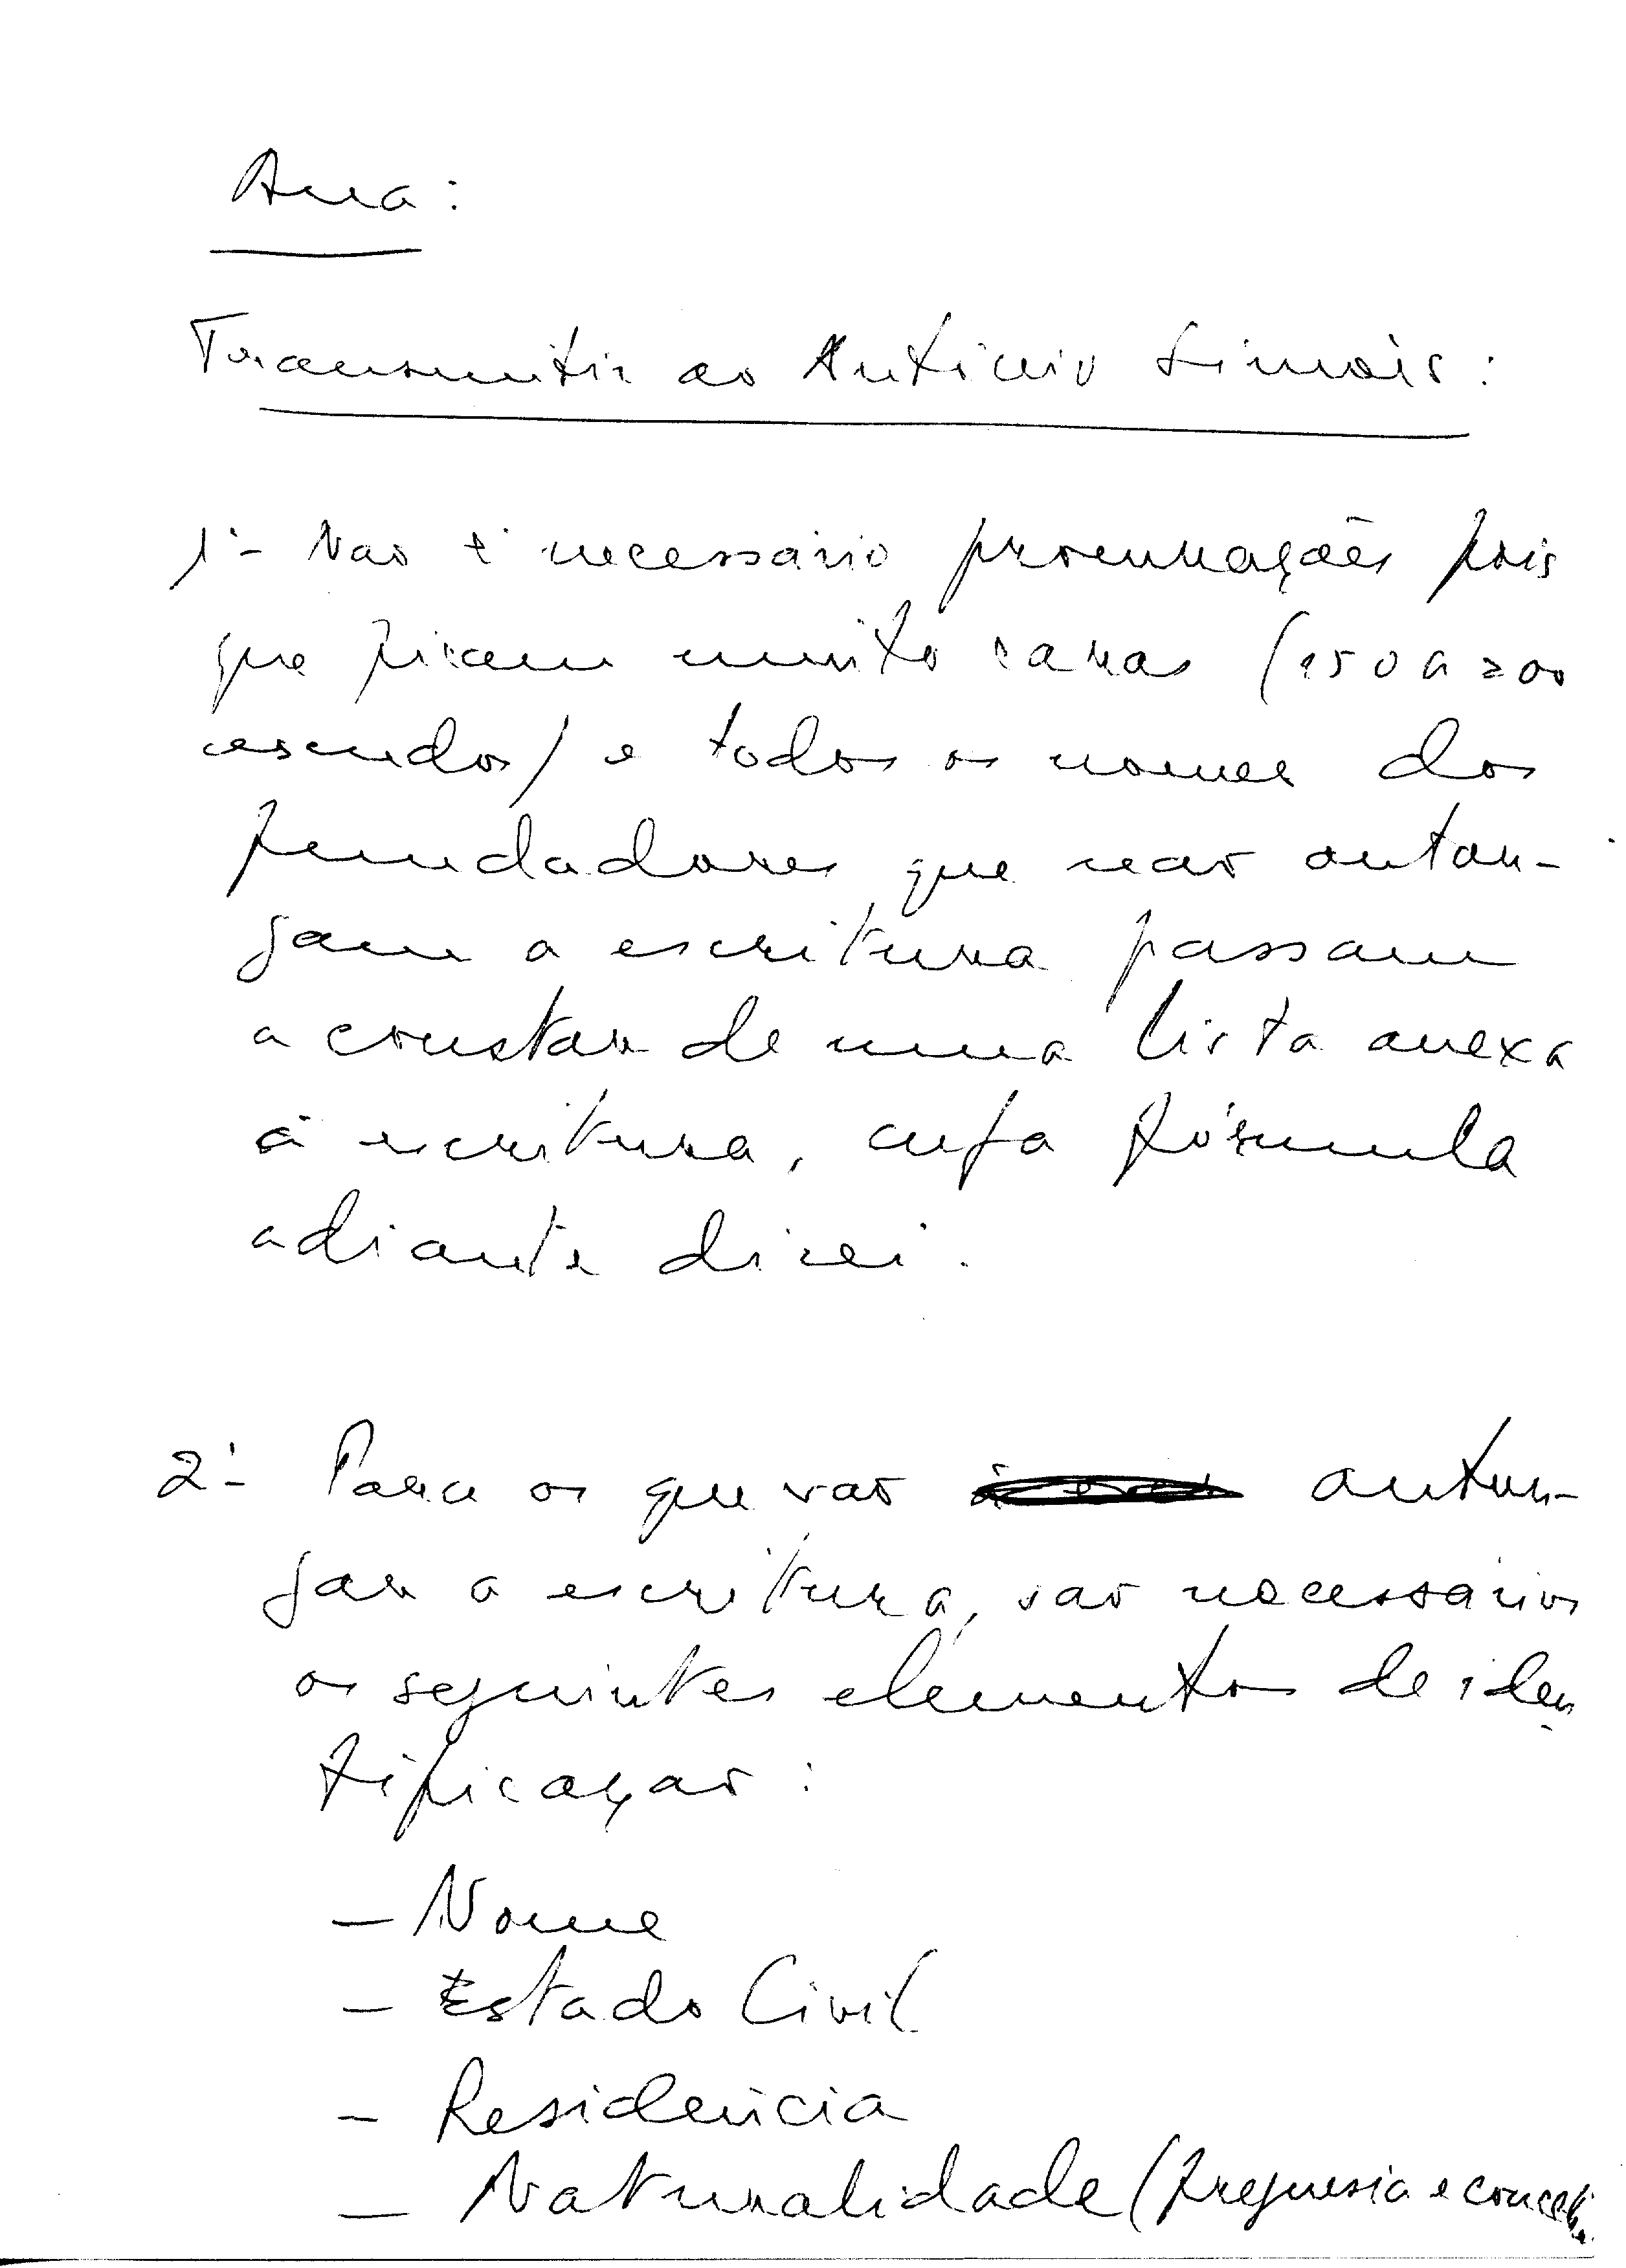 Ana:
Transmitir ao António Simões:
1º- Nao é necessário procurações pois
que ficam muito caras (150 a 200
escudos) e todos os nomes dos
fundadores que nao outor-
gam a escritura passam
a constar de uma lista anexa
à escritura, cuja fórmula
adiante direi.
2º- Para os que vao outor-
gar a escritura, sao necessários
os seguintes elementos de iden
tificaçao:
- Nome
- Estado Civil
- Residência
- Naturalidade (freguesia e concelho